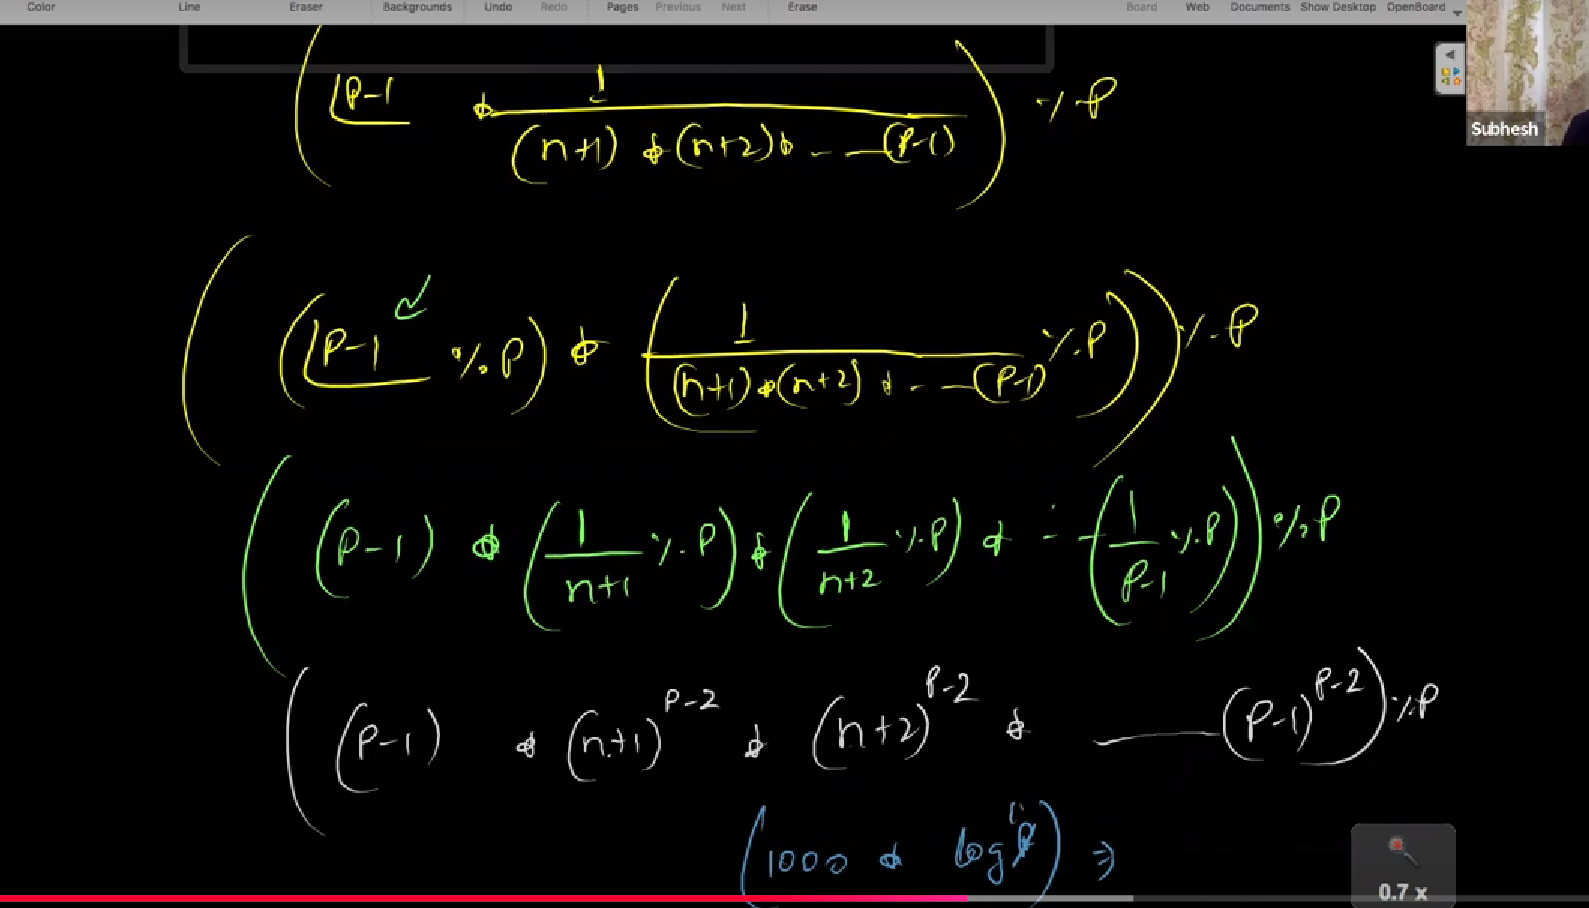 Color Line Eraser Backgrounds Undo Redo Pages Previous Next Erase Board Web Documents Show Desktop OpenBoard
( |P-1 * 1 / (n+1) * (n+2) * - - (P-1) ) % P
Subhesh
( ( |P-1 % P ) * ( 1 / (n+1) * (n+2) * - - (P-1) % P ) ) % P
( (P-1) * ( 1 / n+1 % P ) * ( 1 / n+2 % P ) * - - ( 1 / P-1 % P ) ) % P
( (P-1) * (n+1)^P-2 * (n+2)^P-2 * —— (P-1)^P-2 ) % P
( 1000 * log P ) ⇒
0.7 x